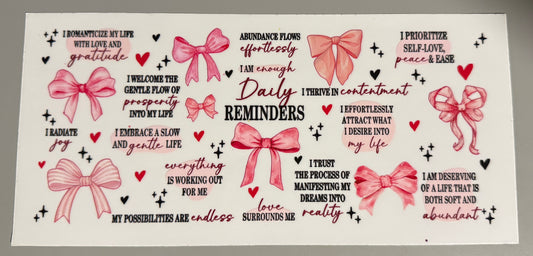 I ROMANTICIZE MY LIFE
WITH LOVE AND
gratitude
ABUNDANCE FLOWS
effortlessly
I AM enough
Daily
REMINDERS
I PRIORITIZE
SELF-LOVE,
peace & EASE
I WELCOME THE
GENTLE FLOW OF
prosperity
INTO MY LIFE
I THRIVE IN contentment
I RADIATE
joy
I EMBRACE A SLOW
AND gentle LIFE
I EFFORTLESSLY
ATTRACT WHAT
I DESIRE INTO
my life
everything
IS WORKING OUT
FOR ME
I TRUST
THE PROCESS OF
MANIFESTING MY
DREAMS INTO
reality
I AM DESERVING
OF A LIFE THAT IS
BOTH SOFT AND
abundant
MY POSSIBILITIES ARE endless
love
SURROUNDS ME